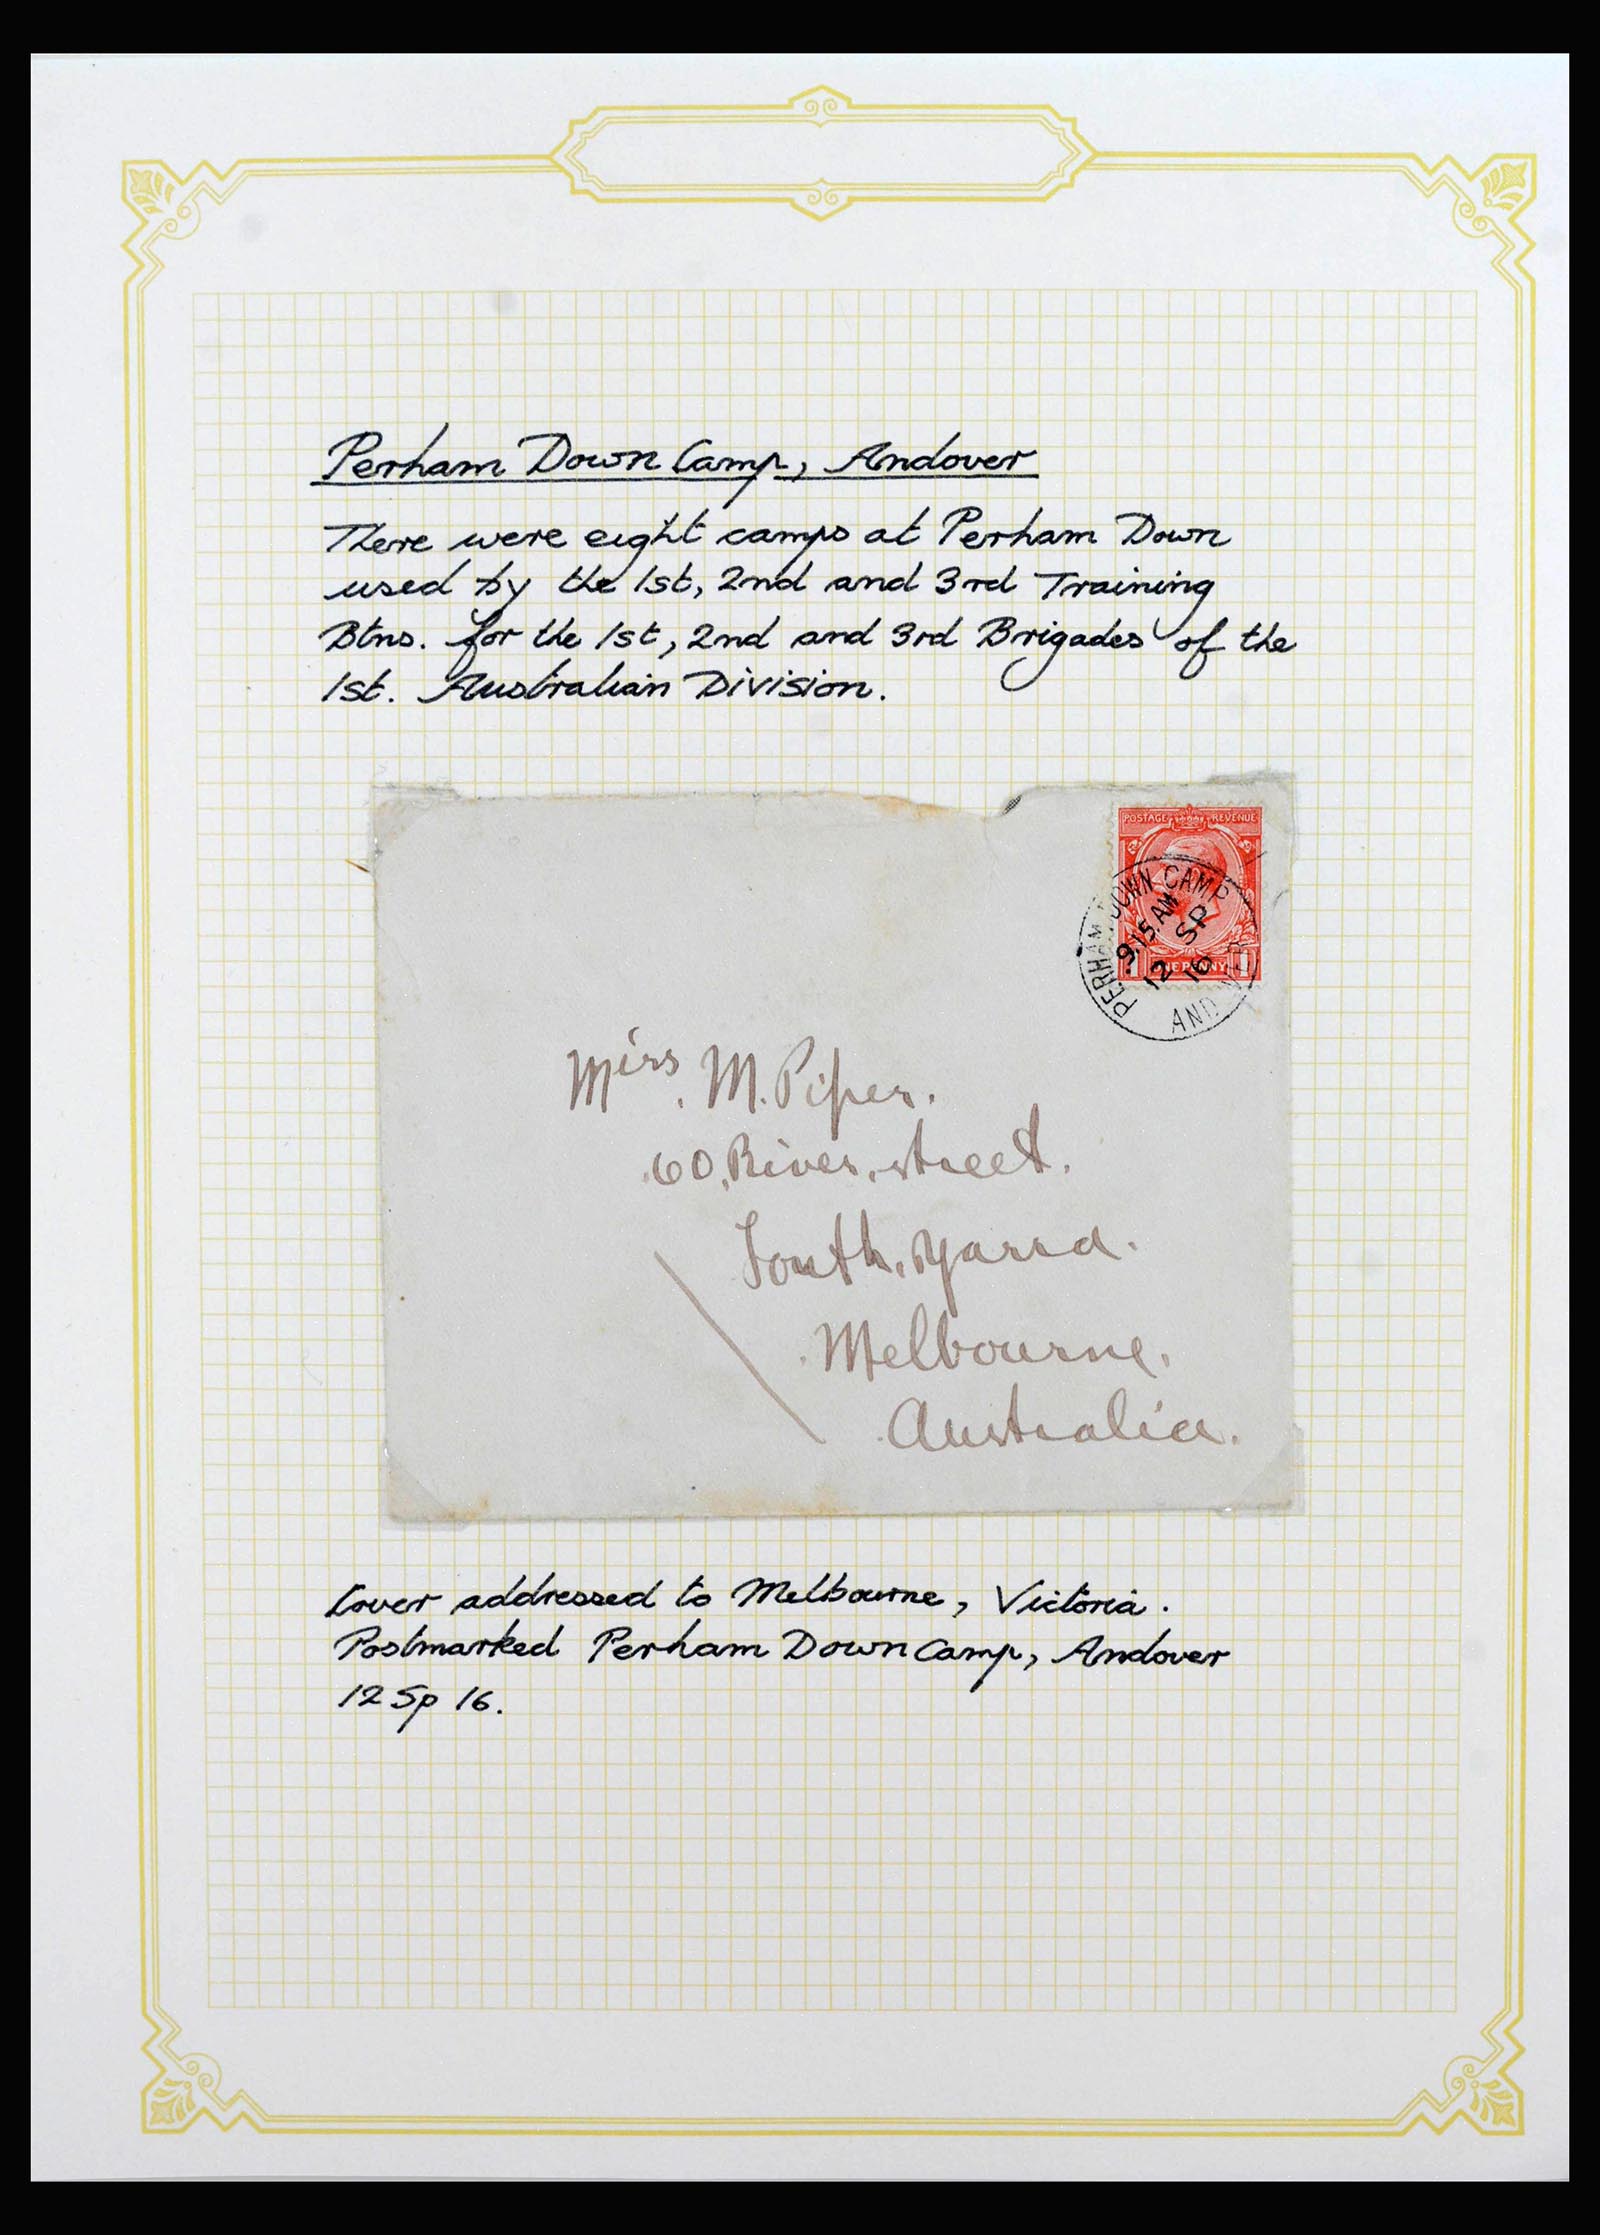 Perham Down Camp, Andover
There were eight camps at Perham Down
used by the 1st, 2nd and 3rd Training
Btns. for the 1st, 2nd and 3rd Brigades of the
1st. Australian Division.
POSTAGE REVENUE
PERHAM DOWN CAMP
9.15 AM
12 SP
16
ANDOVER
1 ONE PENNY 1
Miss. M. Piper.
60, River, street.
South, Yarra.
Melbourne.
Australia.
Cover addressed to Melbourne, Victoria.
Postmarked Perham Down Camp, Andover
12 Sp 16.